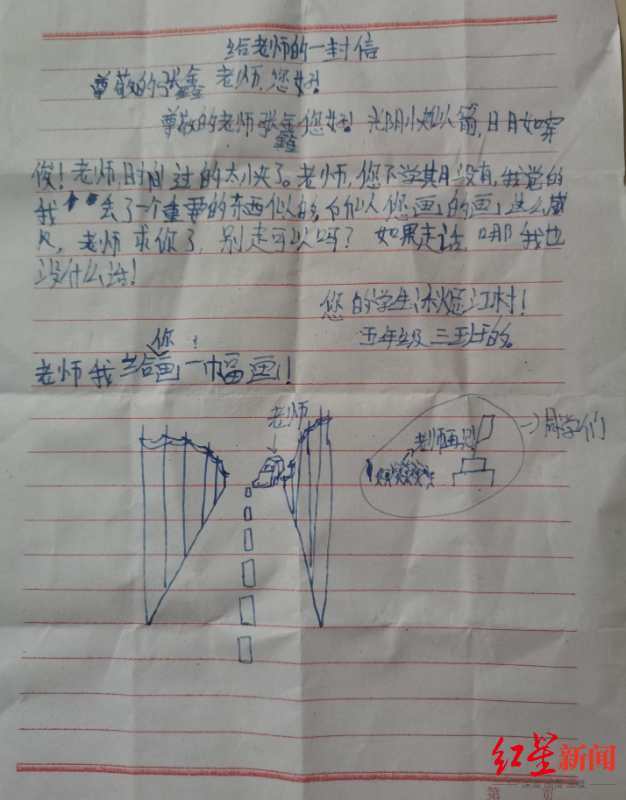 给老师的一封信
尊敬的张鑫老师,您好!
尊敬的老师张鑫您好!光阴似箭,日月如穿
俊!老师,时间过的太快了。老师,您下学其月没有,我觉的
我去了一个重要的东西似的,您画的画,这么
,老师求你了,别走可以吗?如果走话,哪我也
没什么话!
您的学生江村!
五年级三班的。
你!
老师我给画一幅画!
老师
老师再见
同学们
红星新闻
第 页